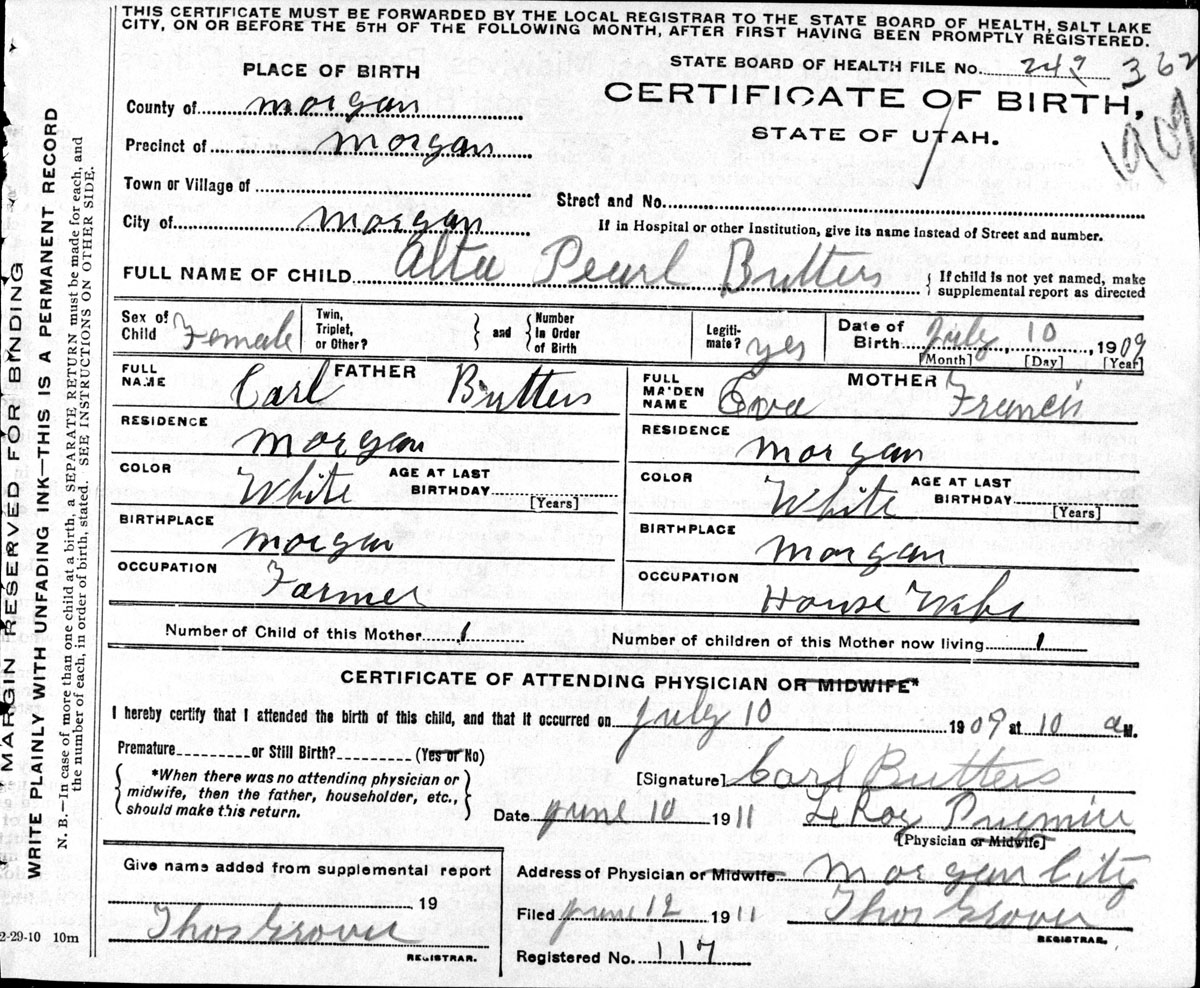 THIS CERTIFICATE MUST BE FORWARDED BY THE LOCAL REGISTRAR TO THE STATE BOARD OF HEALTH, SALT LAKE
CITY, ON OR BEFORE THE 5TH OF THE FOLLOWING MONTH, AFTER FIRST HAVING BEEN PROMPTLY REGISTERED.
PLACE OF BIRTH
STATE BOARD OF HEALTH FILE No. 242 362
County of morgan
CERTIFICATE OF BIRTH,
1909
Precinct of morgan
STATE OF UTAH.
Town or Village of
Street and No.
City of morgan
If in Hospital or other Institution, give its name instead of Street and number.
FULL NAME OF CHILD Alta Pearl Butters
{ If child is not yet named, make
supplemental report as directed
Sex of Child Female
Twin, Triplet, or Other? } and { Number in Order of Birth
Legiti-mate? yes
Date of Birth July 10, 1909
[Month] [Day] [Year]
FATHER
FULL NAME Carl Butters
RESIDENCE
morgan
COLOR White
AGE AT LAST BIRTHDAY
[Years]
BIRTHPLACE
morgan
OCCUPATION
Farmer
MOTHER
FULL MAIDEN NAME Eva Francis
RESIDENCE
morgan
COLOR White
AGE AT LAST BIRTHDAY
[Years]
BIRTHPLACE
morgan
OCCUPATION
House Wife
Number of Child of this Mother 1
Number of children of this Mother now living 1
CERTIFICATE OF ATTENDING PHYSICIAN OR MIDWIFE*
I hereby certify that I attended the birth of this child, and that it occurred on July 10 1909 at 10 a M.
Premature or Still Birth? (Yes or No)
{ *When there was no attending physician or
midwife, then the father, householder, etc.,
should make this return. }
[Signature] Carl Butters
Date June 10 1911 LeRoy
[Physician or Midwife]
Give name added from supplemental report
19
Thos Grover
REGISTRAR.
Address of Physician or Midwife morgan City
Filed June 12 1911 Thos Grover
REGISTRAR.
Registered No. 117
2-29-10 10m
MARGIN RESERVED FOR BINDING
WRITE PLAINLY WITH UNFADING INK—THIS IS A PERMANENT RECORD
N. B.—In case of more than one child at a birth, a SEPARATE RETURN must be made for each, and
the number of each, in order of birth, stated. SEE INSTRUCTIONS ON OTHER SIDE.